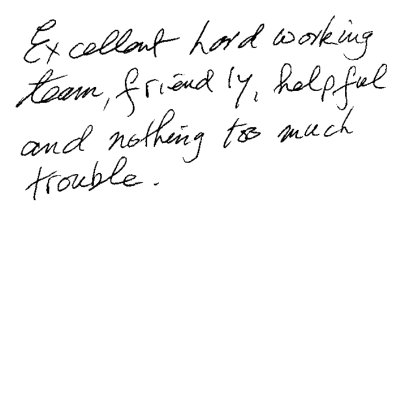 Excellent hard working
team, friendly, helpful
and nothing too much
trouble.